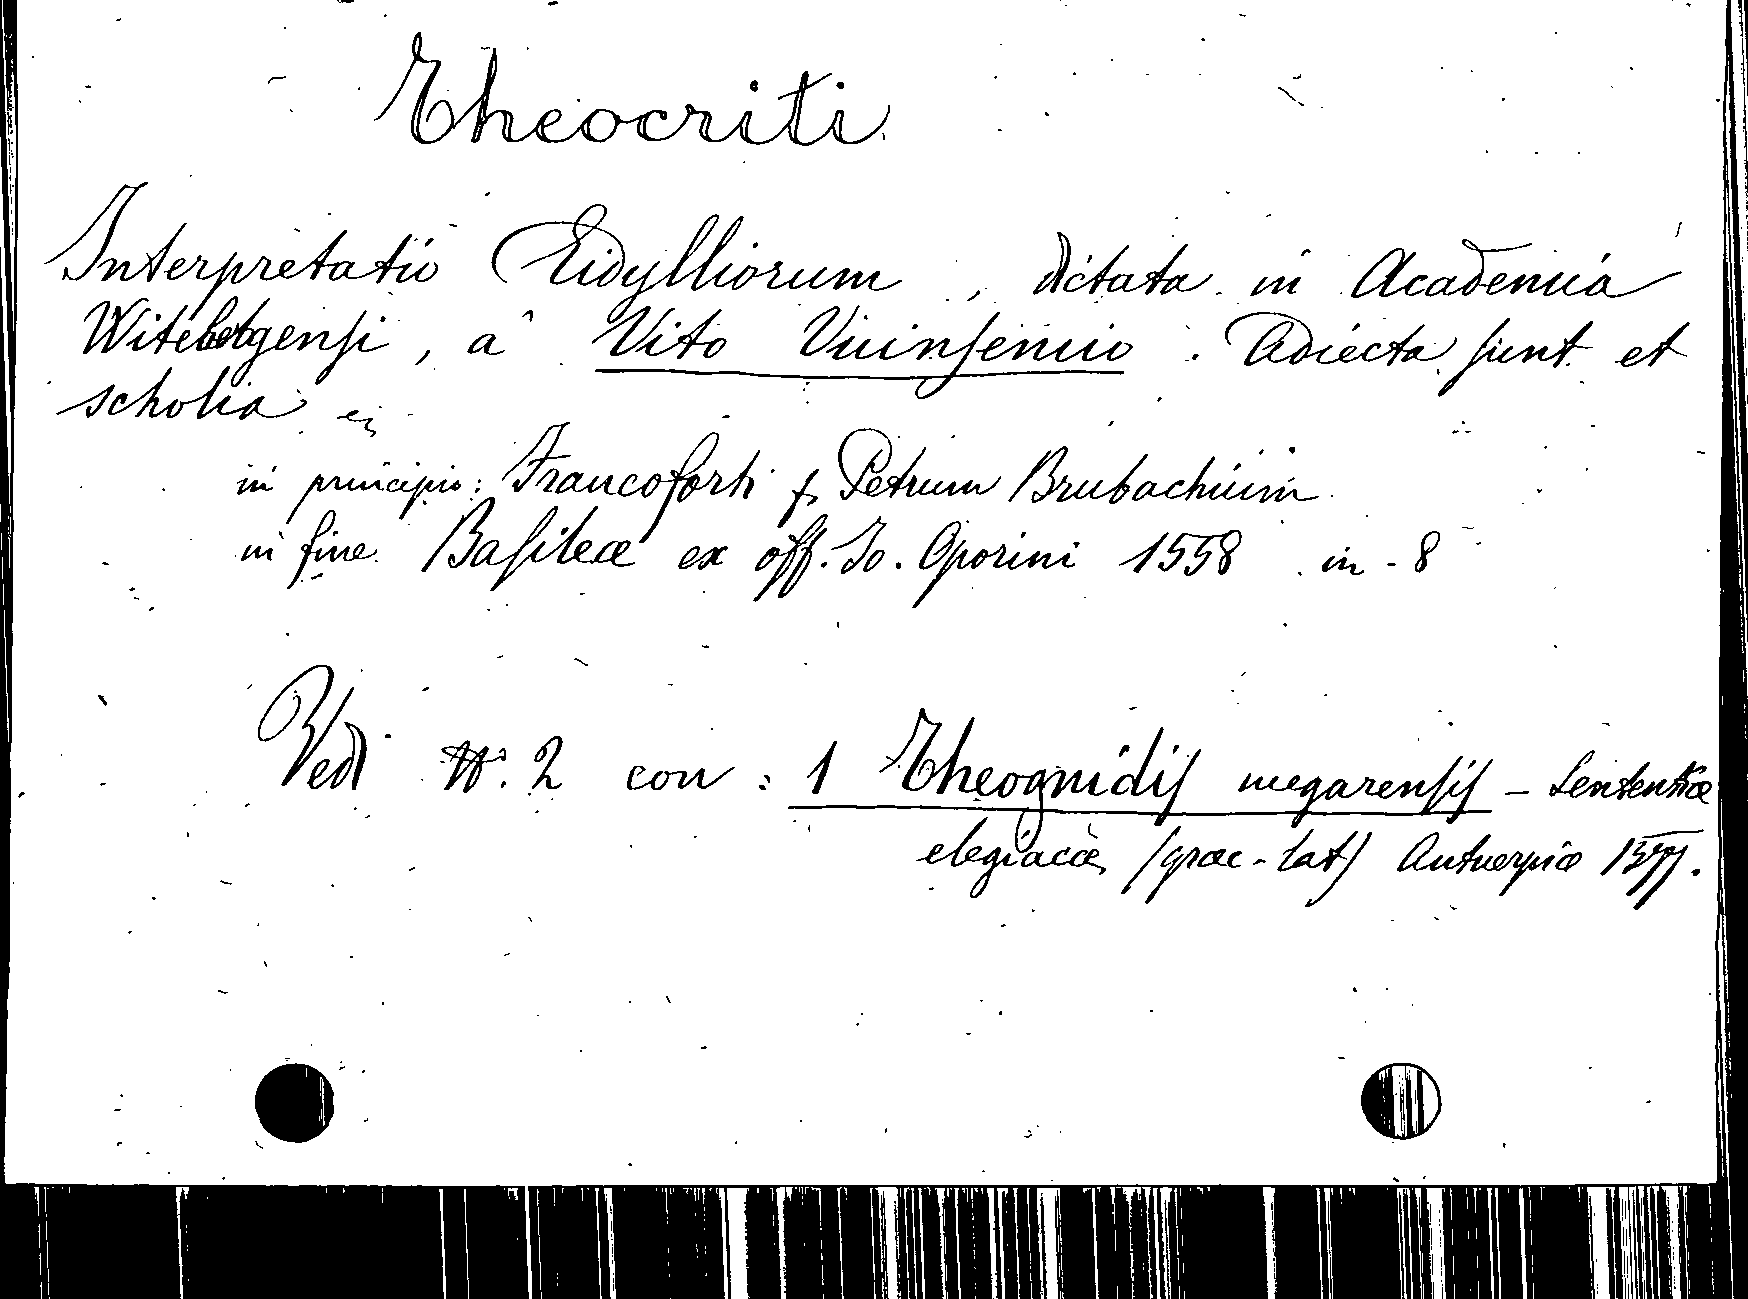 Theocriti
Interpretatio Eidylliorum, dictata in Academia
Witebergensi, a Vito Vuinsemio. Adiecta sunt et
scholia
in principio: Francoforti p Petrum Brubachium
in fine Basileæ ex off. Io. Oporini 1558 in-8
Vedi N. 2 con: 1 Theognidis megarensis - Sententiæ
elegiacæ (græc-lat) Antuerpiæ